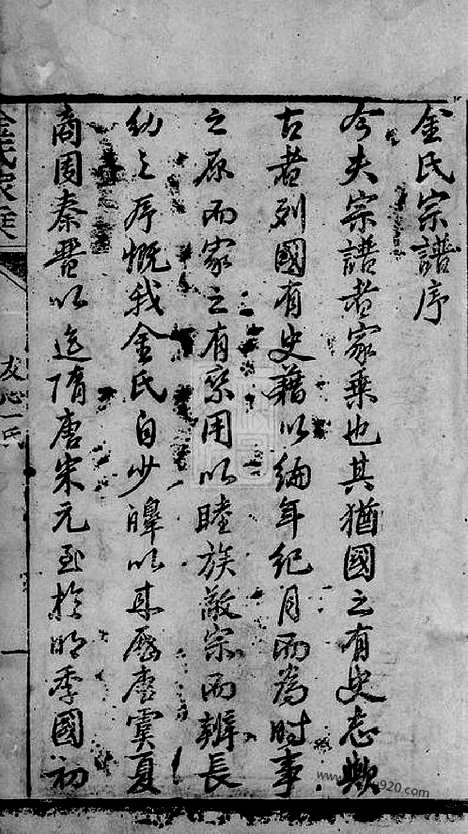 金氏宗譜序
今夫宗譜者家乗也其猶國之有史志歟
古者列國有史藉以编年紀月而為时事
之原而家之有乘用以睦族敬宗而辨長
幼之序慨我金氏自少皞以来歷唐虞夏
商周秦晋以迄隋唐宋元至於明季國初
金氏家乘
友心一氏
一
www.
920.com